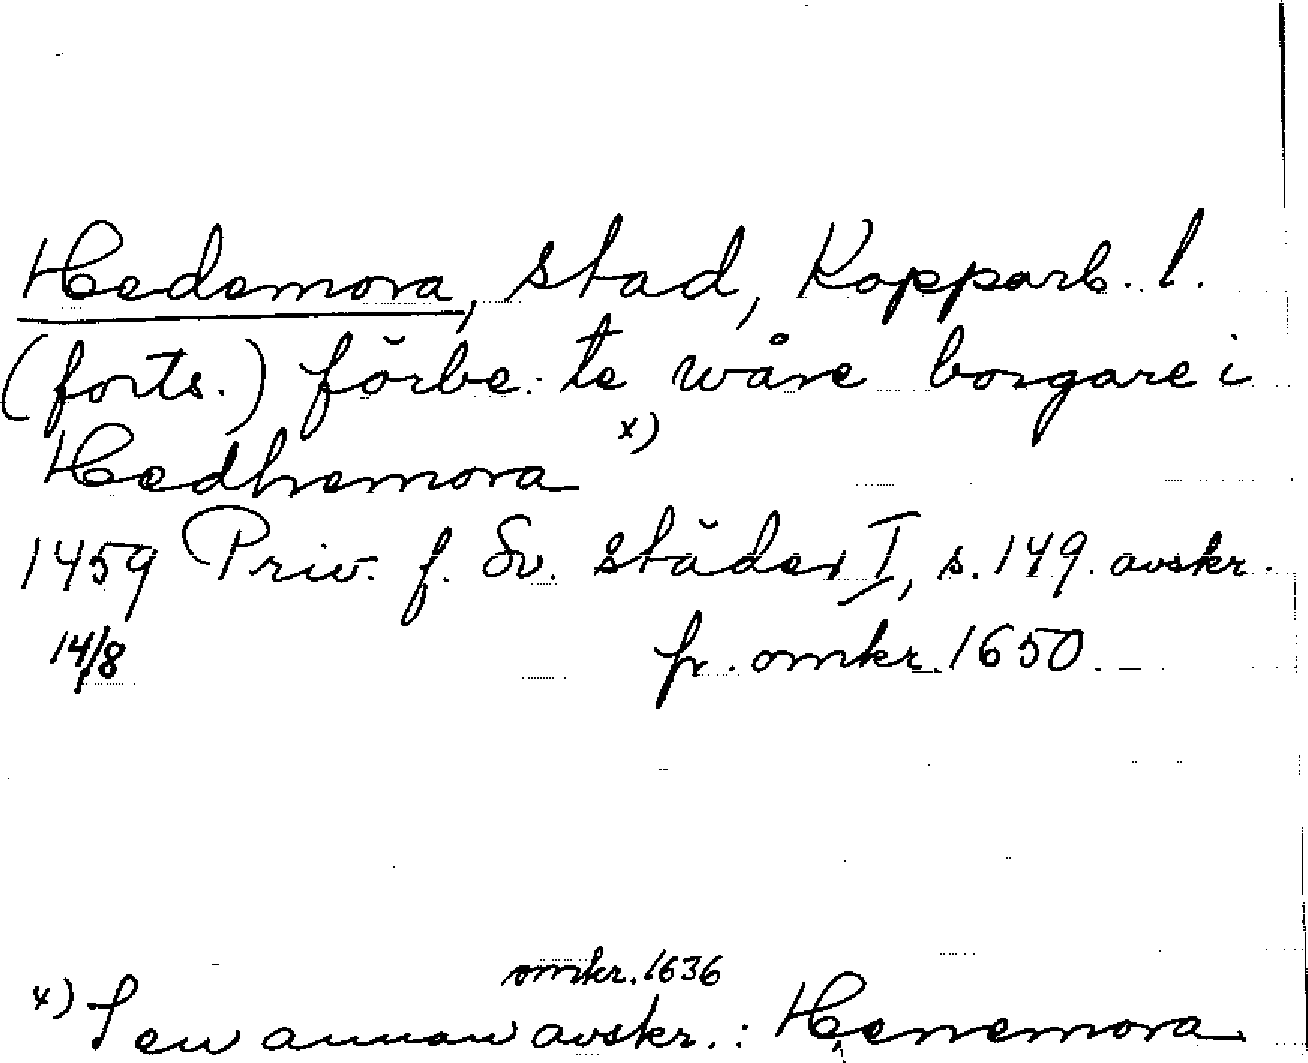 Hedemora, stad, Kopparb. l.
(forts.) förbe: te wåre borgare i
Hedhemora x)
1459 Priv. f. Sv. städer I, s. 149. avskr.
14/8 fr. omkr. 1650. –
omkr. 1636
x) I en annan avskr.: Henemora